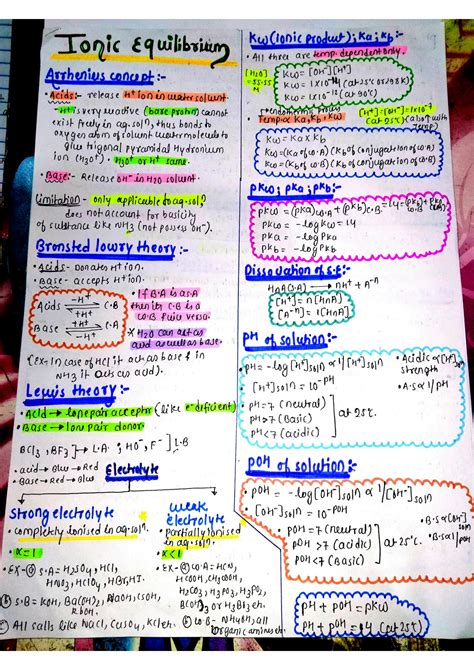 Ionic Equilibrium
Arrhenius concept:-
• Acids:- release H+ ion in water solvent
- H+ is very reactive (bare proton) cannot
exist freely in aq. soln, thus bonds to
oxygen atom of solvent water molecule to
give trigonal pyramidal Hydronium
ion (H3O+). H3O+ or H+ same.
• Base:- Release OH- in H2O solvent.
Limitation - only applicable to aq. soln
does not account for basicity
of substance like NH3 (not posses OH-).
Bronsted lowry theory:-
• Acids - Donates H+ ion.
• Base - accepts H+ ion.
Acids -H+ +H+ C.B
Base +H+ -H+ C.A
• If B.A is as A
then its C.B is a
& vice versa.
* H2O can act as
acid as well as base.
{Ex- In case of HCl it act as base & in
NH3 it act as acid}
Lewis theory:-
• Acid → lone pair accepter (like e- dificient)
• Base → lone pair donor.
BCl3, BF3 → L.A ; HO-, F- ] L.B
• acid → Blue → Red
• Base → Red → Blue
Electrolyte
strong electrolyte
• completly ionised in aq. soln.
• α = 1
• Ex- ⓐ S.A = H2SO4, HCl,
HNO3, HClO4, HBr, HI.
ⓑ S.B = KOH, Ba(OH)2, NaOH, CsOH,
ⓒ All salts like NaCl, CuSO4, KCl etc.
weak electrolyte
• Partially ionised
in aq. soln.
• α < 1
• Ex- ⓐ W.A = HCN,
HCOOH, CH3COOH,
H2CO3, H3PO3, H3PO2,
B(OH)3 or H3BO3 etc.
ⓑ W.B - NH4OH, all
organic amines etc.
Kw (ionic product); Ka; Kb:-
• All three are temp. dependent only.
[H2O] = 55.55 M
Kw = [OH-][H+]
Kw = 1×10-14 (at 25°C or 298K)
= 1×10-12 (at 90°C)
Temp ∝ Ka, Kb, Kw
[H+] = [OH-] = 1×10-7
(at 25°C)
Kw = Ka × Kb
Kw = (Ka of W.A) (Kb of conjugation of W.A)
Kw = (Kb of W.B) (Ka of conjugation of W.B)
pKw; pKa; pKb:-
pKw = (pKa)W.A + (pKb)C.B = 14 = pKa + pKb
pKw = -log Kw = 14
pKa = -log Ka
pKb = -log Kb
Dissociation of S.E:-
HnA(S.A) → nH+ + A-n
[H+] = n[HnA]
[A-n] = 1[HnA]
pH of solution:-
pH = -log [H+]soln ∝ 1/[H+]soln
• [H+]soln = 10-pH
• Acidic ∝ [H+]
strength
• A.S ∝ 1/pH
pH = 7 (neutral)
pH > 7 (Basic)
pH < 7 (acidic)
at 25°C.
pOH of solution:-
• pOH = -log [OH-]soln ∝ 1/[OH-]soln
• [OH-]soln = 10-pOH
• B.S ∝ [OH-]
• B.S ∝ 1/pOH
• pOH = 7 (neutral)
pOH > 7 (acidic)
pOH < 7 (Basic)
at 25°C.
pH + pOH = pKw
pH + pOH = 14 (at 25°C)